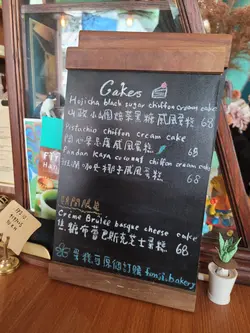 Cakes
Hojicha black sugar chiffon cream cake
焙茶黑糖戚風蛋糕 68
Pistachio chiffon cream cake
開心果忌廉戚風蛋糕 68
Pandan Kaya coconut chiffon cream cake
班蘭咖央椰子戚風蛋糕 68
Crème Brûlée basque cheese cake
焦糖布蕾巴斯克芝士蛋糕 68
蛋糕可原個訂購
bakery